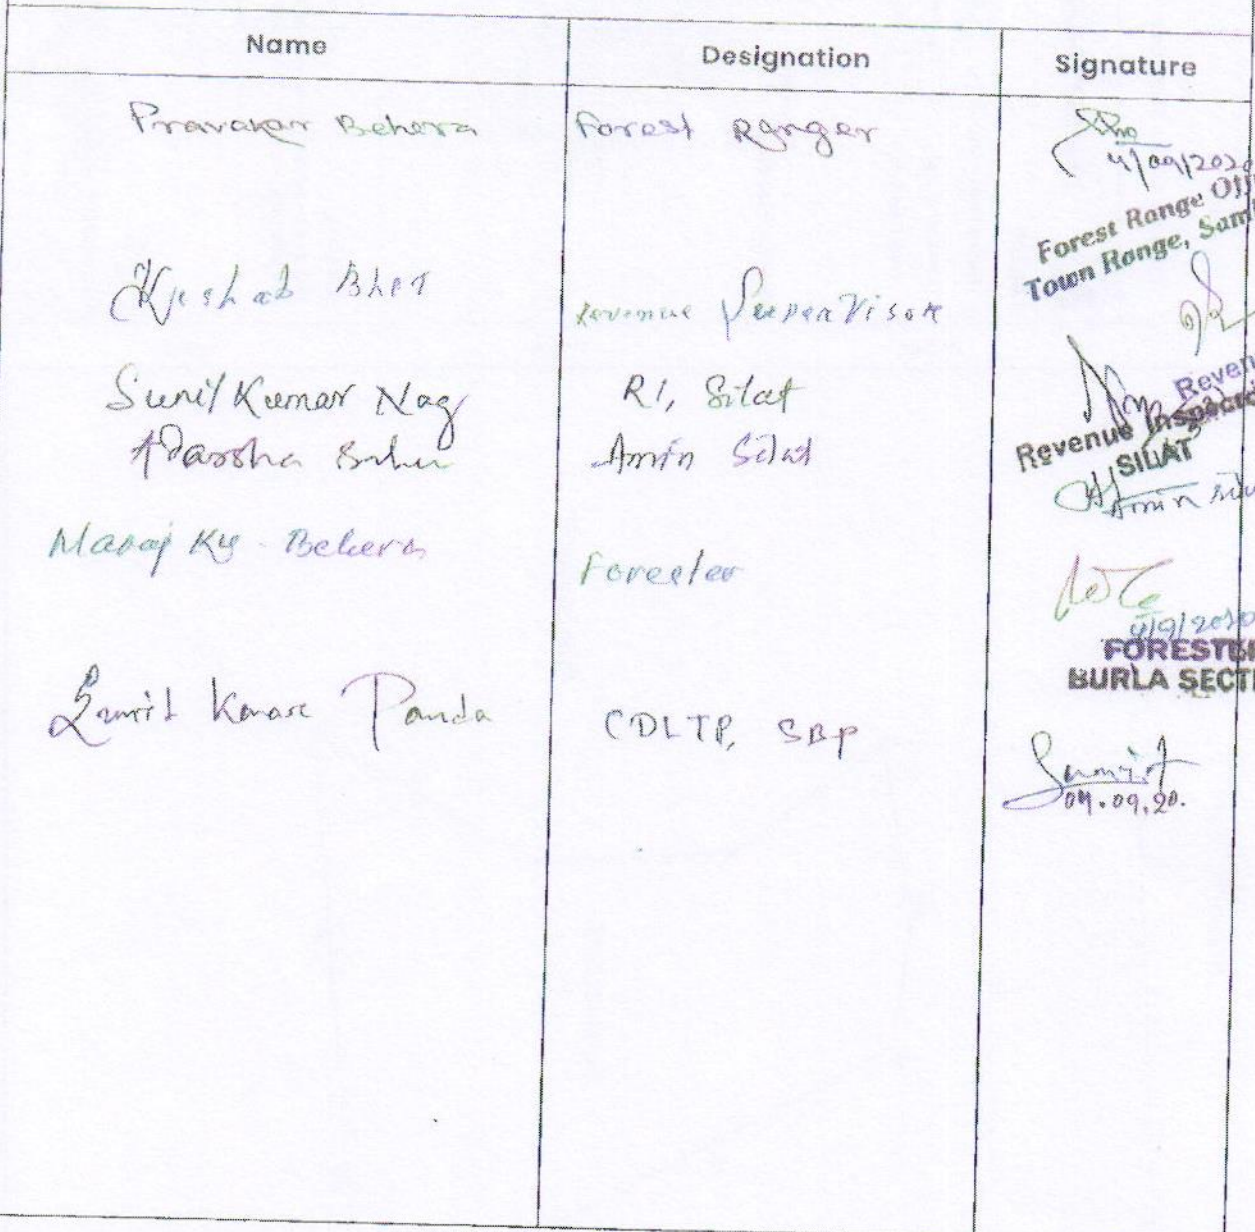 Name Designation Signature
Pravakar Behera Forest Ranger
4/09/2020
Forest Range Off
Town Range, Sam
Keshab Bhoi Revenue Supervisor
Sunil Kumar Nag RI, Silat
Reven
Revenue Inspecto
SILAT
Adarsha Sahu Amin Silat
Amin
Manoj Ku. Behera Forester
4/9/2020
FORESTE
BURLA SECTI
Sumit Kumar Panda CDLTP, SBP
Sumit
04.09.20.